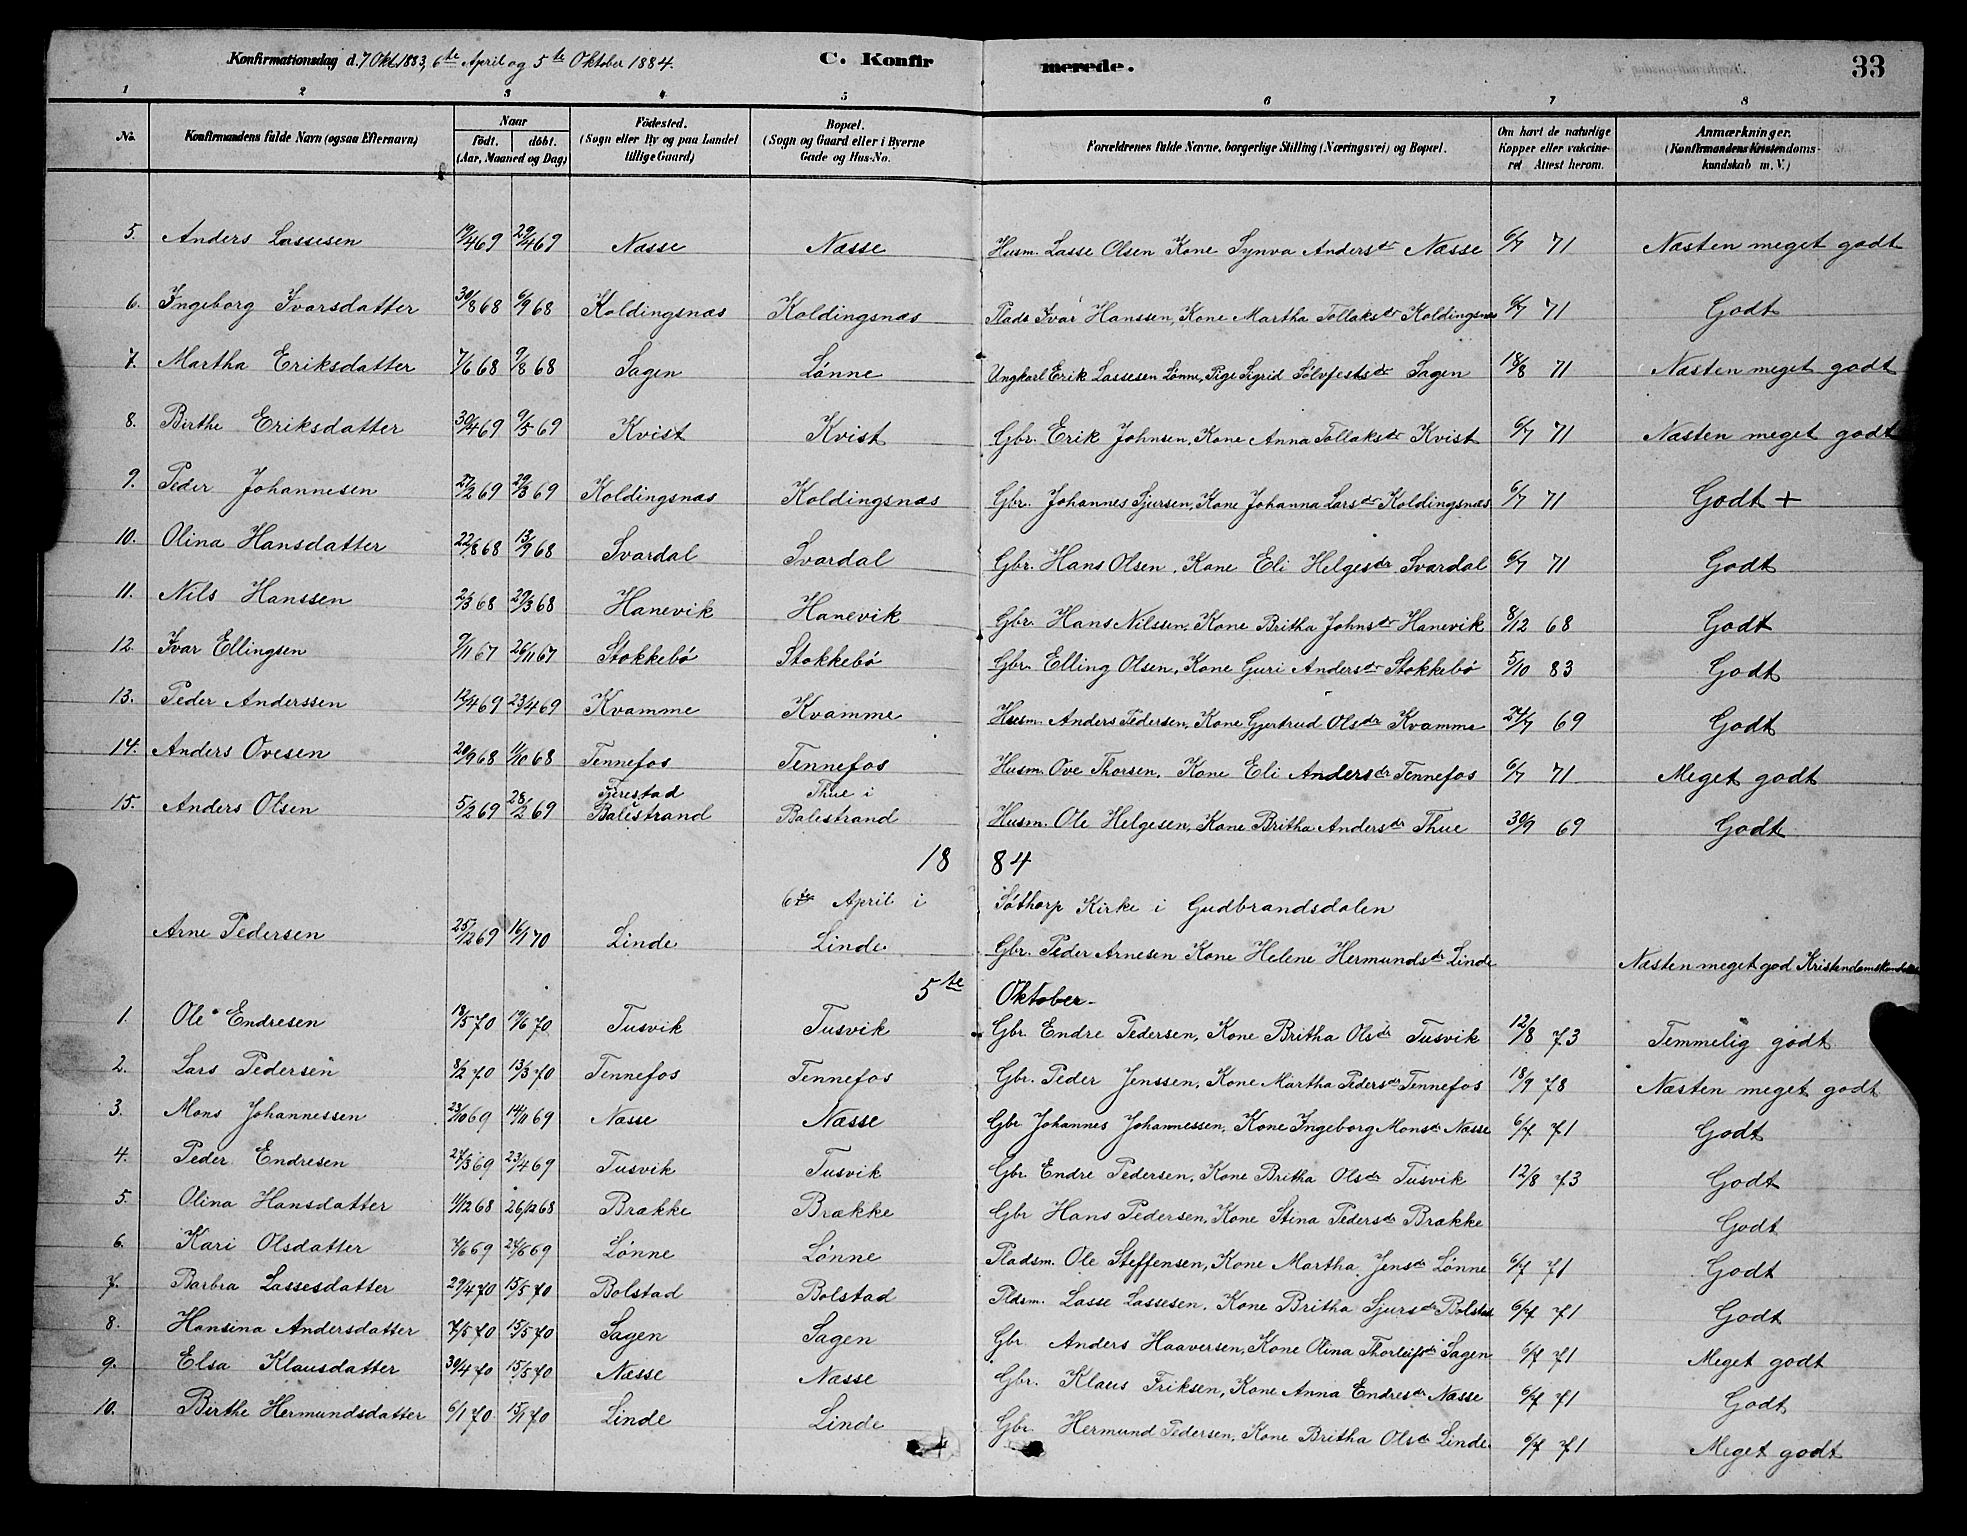 Konfirmationsdag d. 7 Okt. 1883, 6te April og 5te Oktober 1884. C. Konfirmerede. 33
1 2 3 4 5 6 7 8
No. Konfirmandens fulde Navn (ogsaa Efternavn) Naar født. døbt. (Aar, Maaned og Dag) Fødested. (Sogn eller By og paa Landet tillige Gaard) Bopæl. (Sogn og Gaard eller i Byerne Gade og Hus-No. Forældrenes fulde Navne, borgerlige Stilling (Næringsvei) og Bopæl. Om havt de naturlige Kopper eller vakcineret Attest herom. Anmærkninger. (Konfirmandens Kristendomskundskab m. V.)
5. Anders Lassesen 19/4 69 29/4 69 Næsse Næsse Husm. Lasse Olsen Kone Synva Andersdr Næsse 6/7 71 Næsten meget godt
6. Ingeborg Ivarsdatter 30/8 68 6/9 68 Koldingsnæs Koldingsnæs Plads Ivar Hanssen, Kone Martha Tollaksdr Koldingsnæs 6/7 71 Godt
7. Martha Eriksdatter 7/6 68 9/8 68 Sagen Lønne Ungkarl Erik Lassesen Lønne, Pige Sigrid Sølvfestsdr Sagen 18/8 71 Næsten meget godt
8. Birthe Eriksdatter 30/4 69 9/5 69 Kvist Kvist Gbr. Erik Johnsen, Kone Anna Tollaksdr Kvist 6/7 71 Næsten meget godt
9. Peder Johannesen 27/2 69 29/3 69 Koldingsnæs Koldingsnæs Gbr. Johannes Sjursen, Kone Johanna Larsdr Koldingsnæs 6/7 71 Godt +
10. Olina Hansdatter 22/8 68 13/9 68 Svardal Svardal Gbr. Hans Olsen, Kone Eli Helgesdr Svardal 6/7 71 Godt
11. Nils Hanssen 2/3 68 29/3 68 Hanevik Hanevik Gbr. Hans Nilssen, Kone Britha Johnsdr Hanevik 8/12 68 Godt
12. Ivar Ellingsen 9/11 67 26/11 67 Stokkebø Stokkebø Gbr. Elling Olsen, Kone Guri Andersdr Stokkebø 5/10 83 Godt
13. Peder Anderssen 12/4 69 23/4 69 Kvamme Kvamme Husm. Anders Pedersen, Kone Gjertrud Olsdr Kvamme 24/7 69 Godt
14. Anders Ovesen 20/9 68 11/10 68 Tennefos Tennefos Husm. Ove Thorsen, Kone Eli Andersdr Tennefos 6/7 71 Meget godt
15. Anders Olsen 5/2 69 28/2 69 Balestrand Thue i Balestrand Husm. Ole Helgesen, Kone Britha Andersdr Thue 30/9 69 Godt
1884
6te April i Søthorp Kirke i Gudbrandsdalen
Arne Pedersen 25/12 69 16/1 70 Linde Linde Gbr. Peder Arnesen Kone Helene Hermundsdr Linde Næsten meget god
5te Oktober
1. Ole Endresen 18/5 70 19/6 70 Tusvik Tusvik Gbr. Endre Pedersen, Kone Britha Olsdr Tusvik 12/8 73 Temmelig godt
2. Lars Pedersen 8/2 70 13/3 70 Tennefos Tennefos Gbr. Peder Jenssen, Kone Martha Pedersdr Tennefos 18/9 78 Næsten meget godt
3. Mons Johannessen 23/10 69 14/11 69 Næsse Næsse Gbr Johannes Johannessen, Kone Ingeborg Monsdr Næsse 6/7 71 Godt
4. Peder Endresen 27/3 69 23/4 69 Tusvik Tusvik Gbr Endre Pedersen, Kone Britha Olsdr Tusvik 12/8 73 Godt
5. Olina Hansdatter 11/12 68 26/12 68 Brække Brække Gbr Hans Pedersen, Kone Stina Pedersdr Brække Godt
6. Kari Olsdatter 7/6 69 27/6 69 Lønne Lønne Pladsm. Ole Steffensen, Kone Martha Jensdr Lønne 6/7 71 Godt
7. Barbra Lassesdatter 29/4 70 15/5 70 Bolstad Bolstad Pldsm. Lasse Lassesen, Kone Britha Sjursdr Bolstad 6/7 71 Godt
8. Hansina Andersdatter 7/5 70 15/5 70 Sagen Sagen Gbr. Anders Haaversen, Kone Olina Thorleifsdr Sagen 6/7 71 Meget godt
9. Elsa Klausdatter 30/4 70 15/5 70 Næsse Næsse Gbr. Klaus Eriksen, Kone Anna Endresdr Næsse 6/7 71 Godt
10. Birthe Hermundsdatter 6/1 70 15/1 70 Linde Linde Gbr. Hermund Pedersen, Kone Britha Olsdr Linde 6/7 71 Meget godt